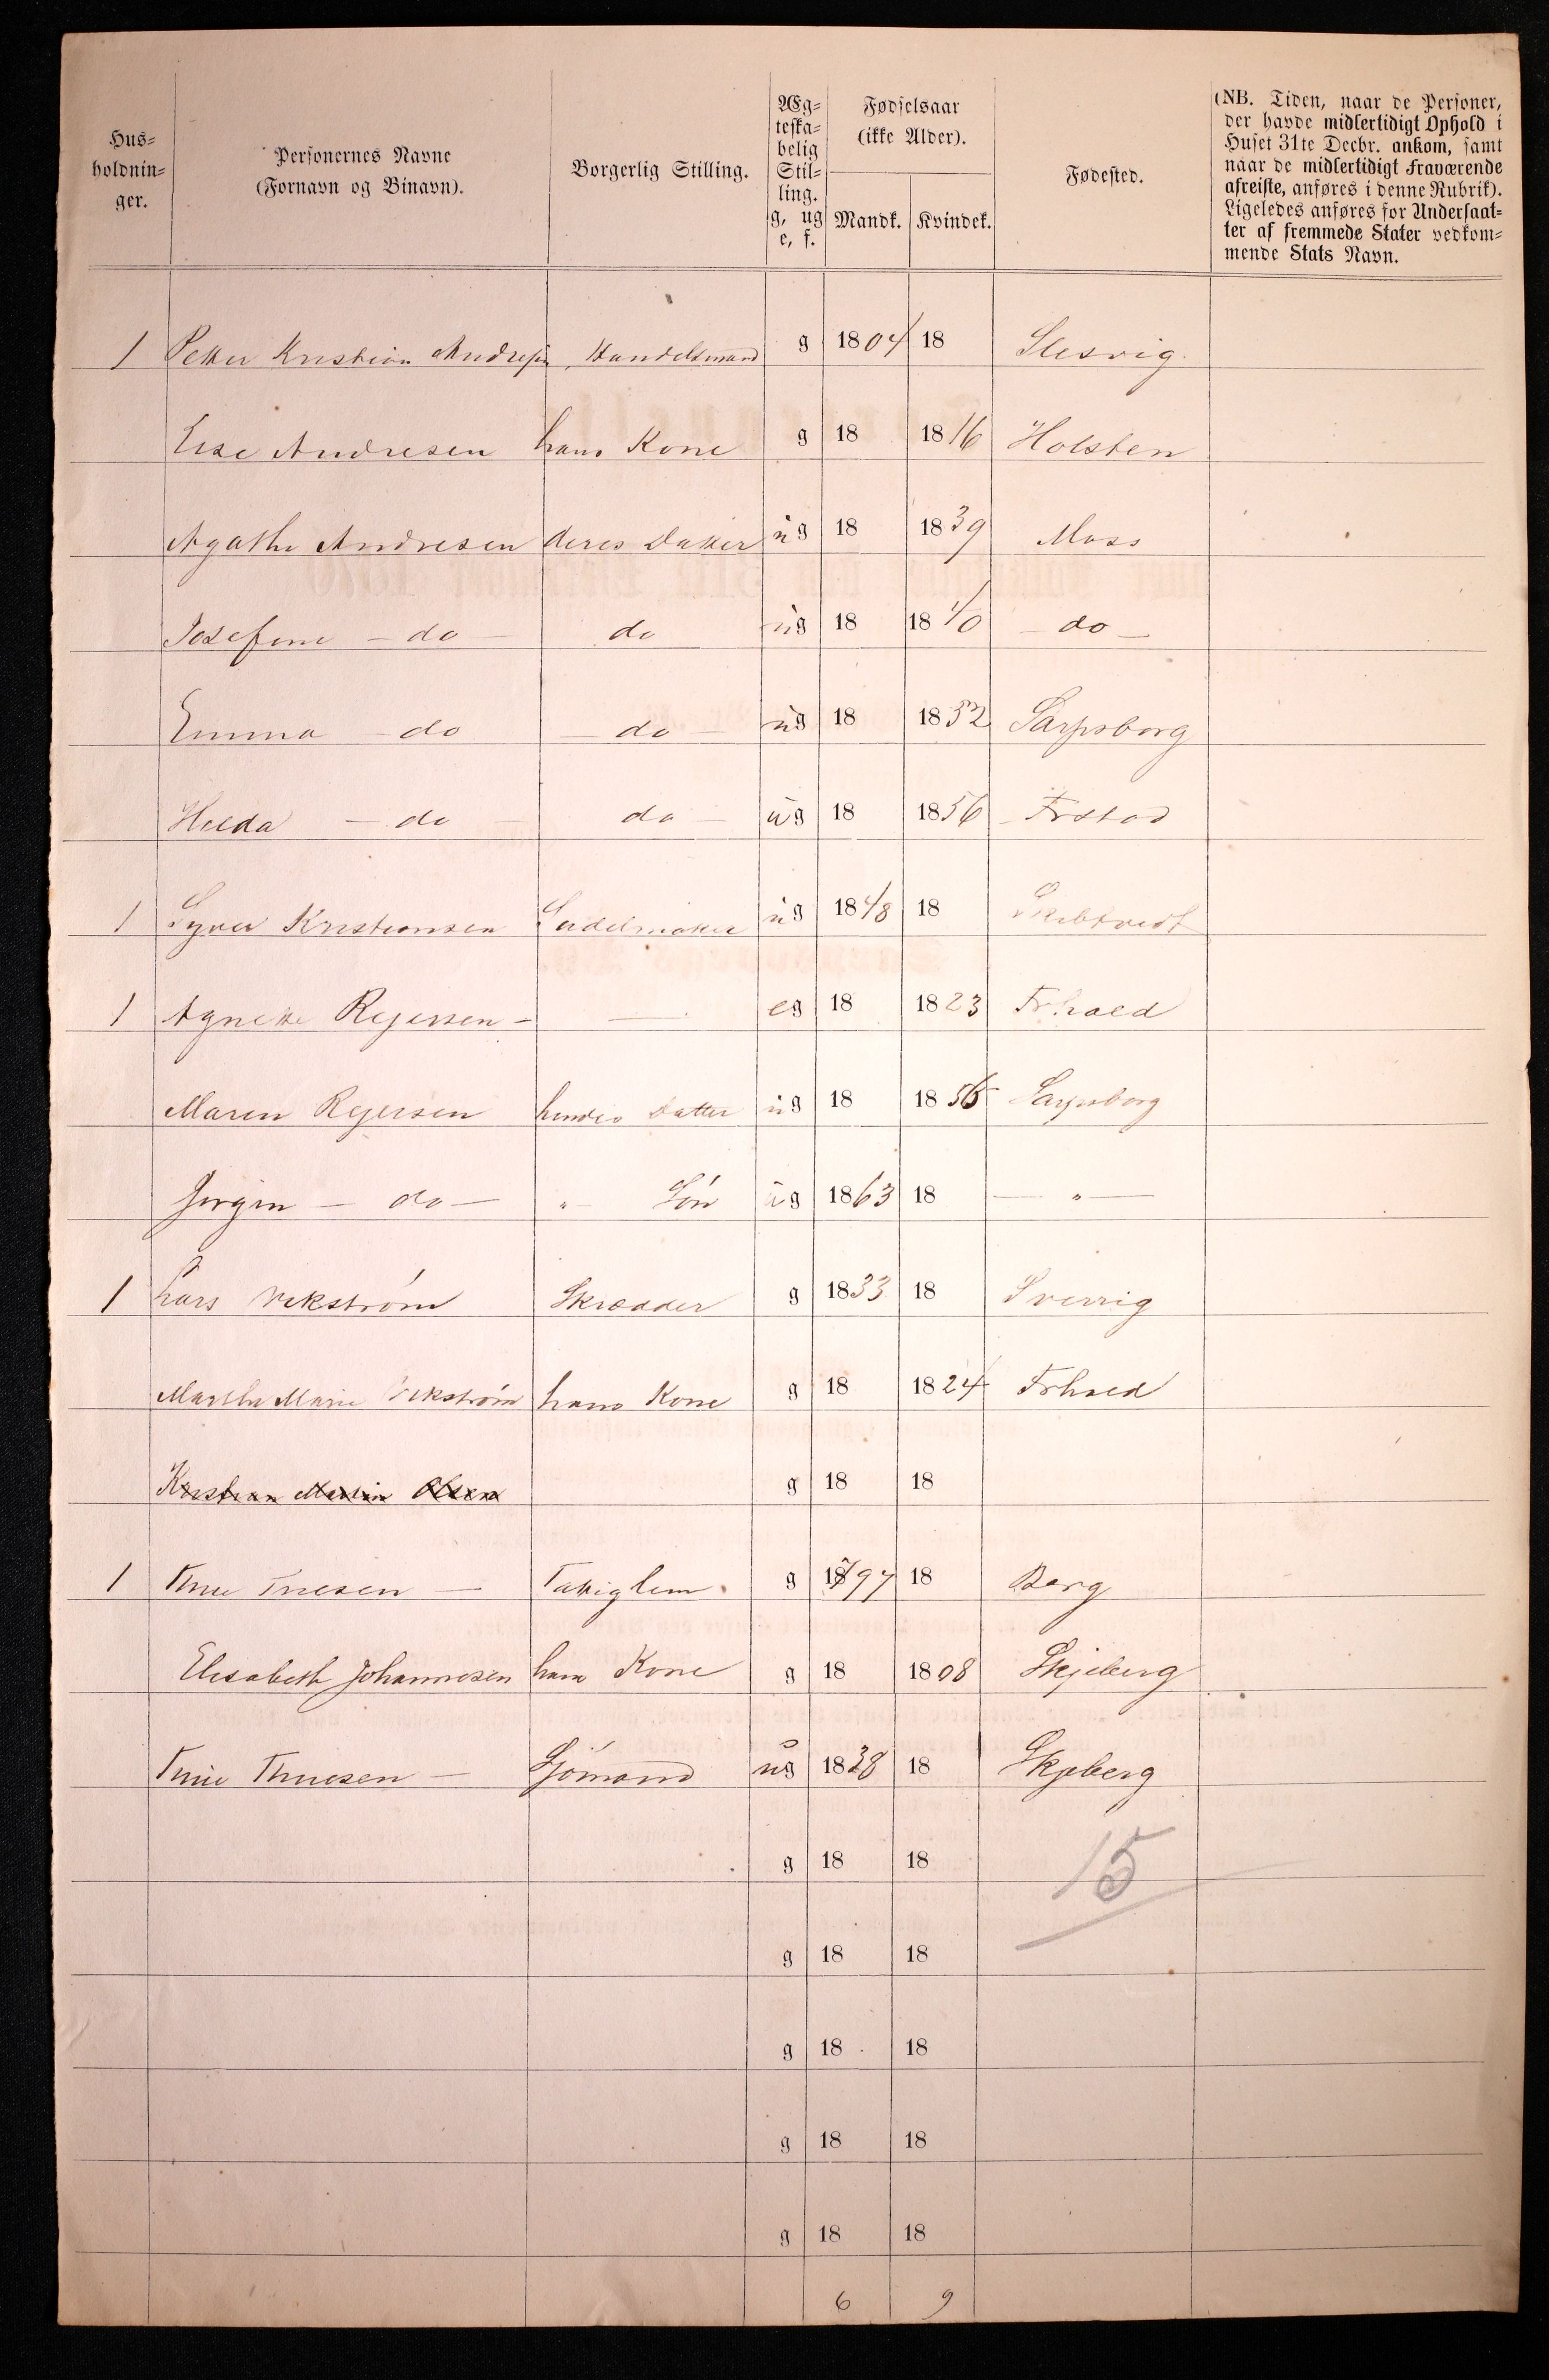 Hus-
holdnin-
ger.
Personernes Navne
(Fornavn og Binavn).
Borgerlig Stilling.
Æg-
teska-
belig
Stil-
ling.
g, ug
e, f.
Fødselsaar
(ikke Alder).
Mandk. Kvindek.
Fødested.
(NB. Tiden, naar de Personer,
der havde midlertidigt Ophold i
Huset 31te Decbr. ankom, samt
naar de midlertidigt Fraværende
afreiste, anføres i denne Rubrik).
Ligeledes anføres for Undersaat-
ter af fremmede Stater vedkom-
mende Stats Navn.
1 Petter Kristian Andresen Handelsmand g 1804 18 Slesvig
Else Andresen hans Kone g 18 1816 Holsten
Agathe Andresen deres Datter ug 18 1839 Moss
Josefine - do - do ug 18 1840 - do -
Emma - do - do - ug 18 1852 Sarpsborg
Hulda - do - do - ug 18 1856 Frstad
1 Syver Kristiansen Sadelmaker ug 1848 18 Skibtvedt
1 Agnette Rejersen - — eg 18 1823 Frhald
Maren Rejersen hendes Datter ug 18 18 Sarpsborg
Jørgen - do - " Søn ug 1863 18 — " —
1 Lars Vekstrøm Skrædder g 1833 18 Sverrig
Martha Marie Vekstrøm hans Kone g 18 1824 Frhald
Kristian Martin Olsen g 18 18
1 Thue Truesen — Fattiglem g 1797 18 Berg
Elisabeth Johannesen hans Kone g 18 1808 Skjeberg
Thue Thuesen — Sjømand ug 1838 18 Skjeberg
g 18 18 15
g 18 18
g 18 18
g 18 18
g 18 18
6 9